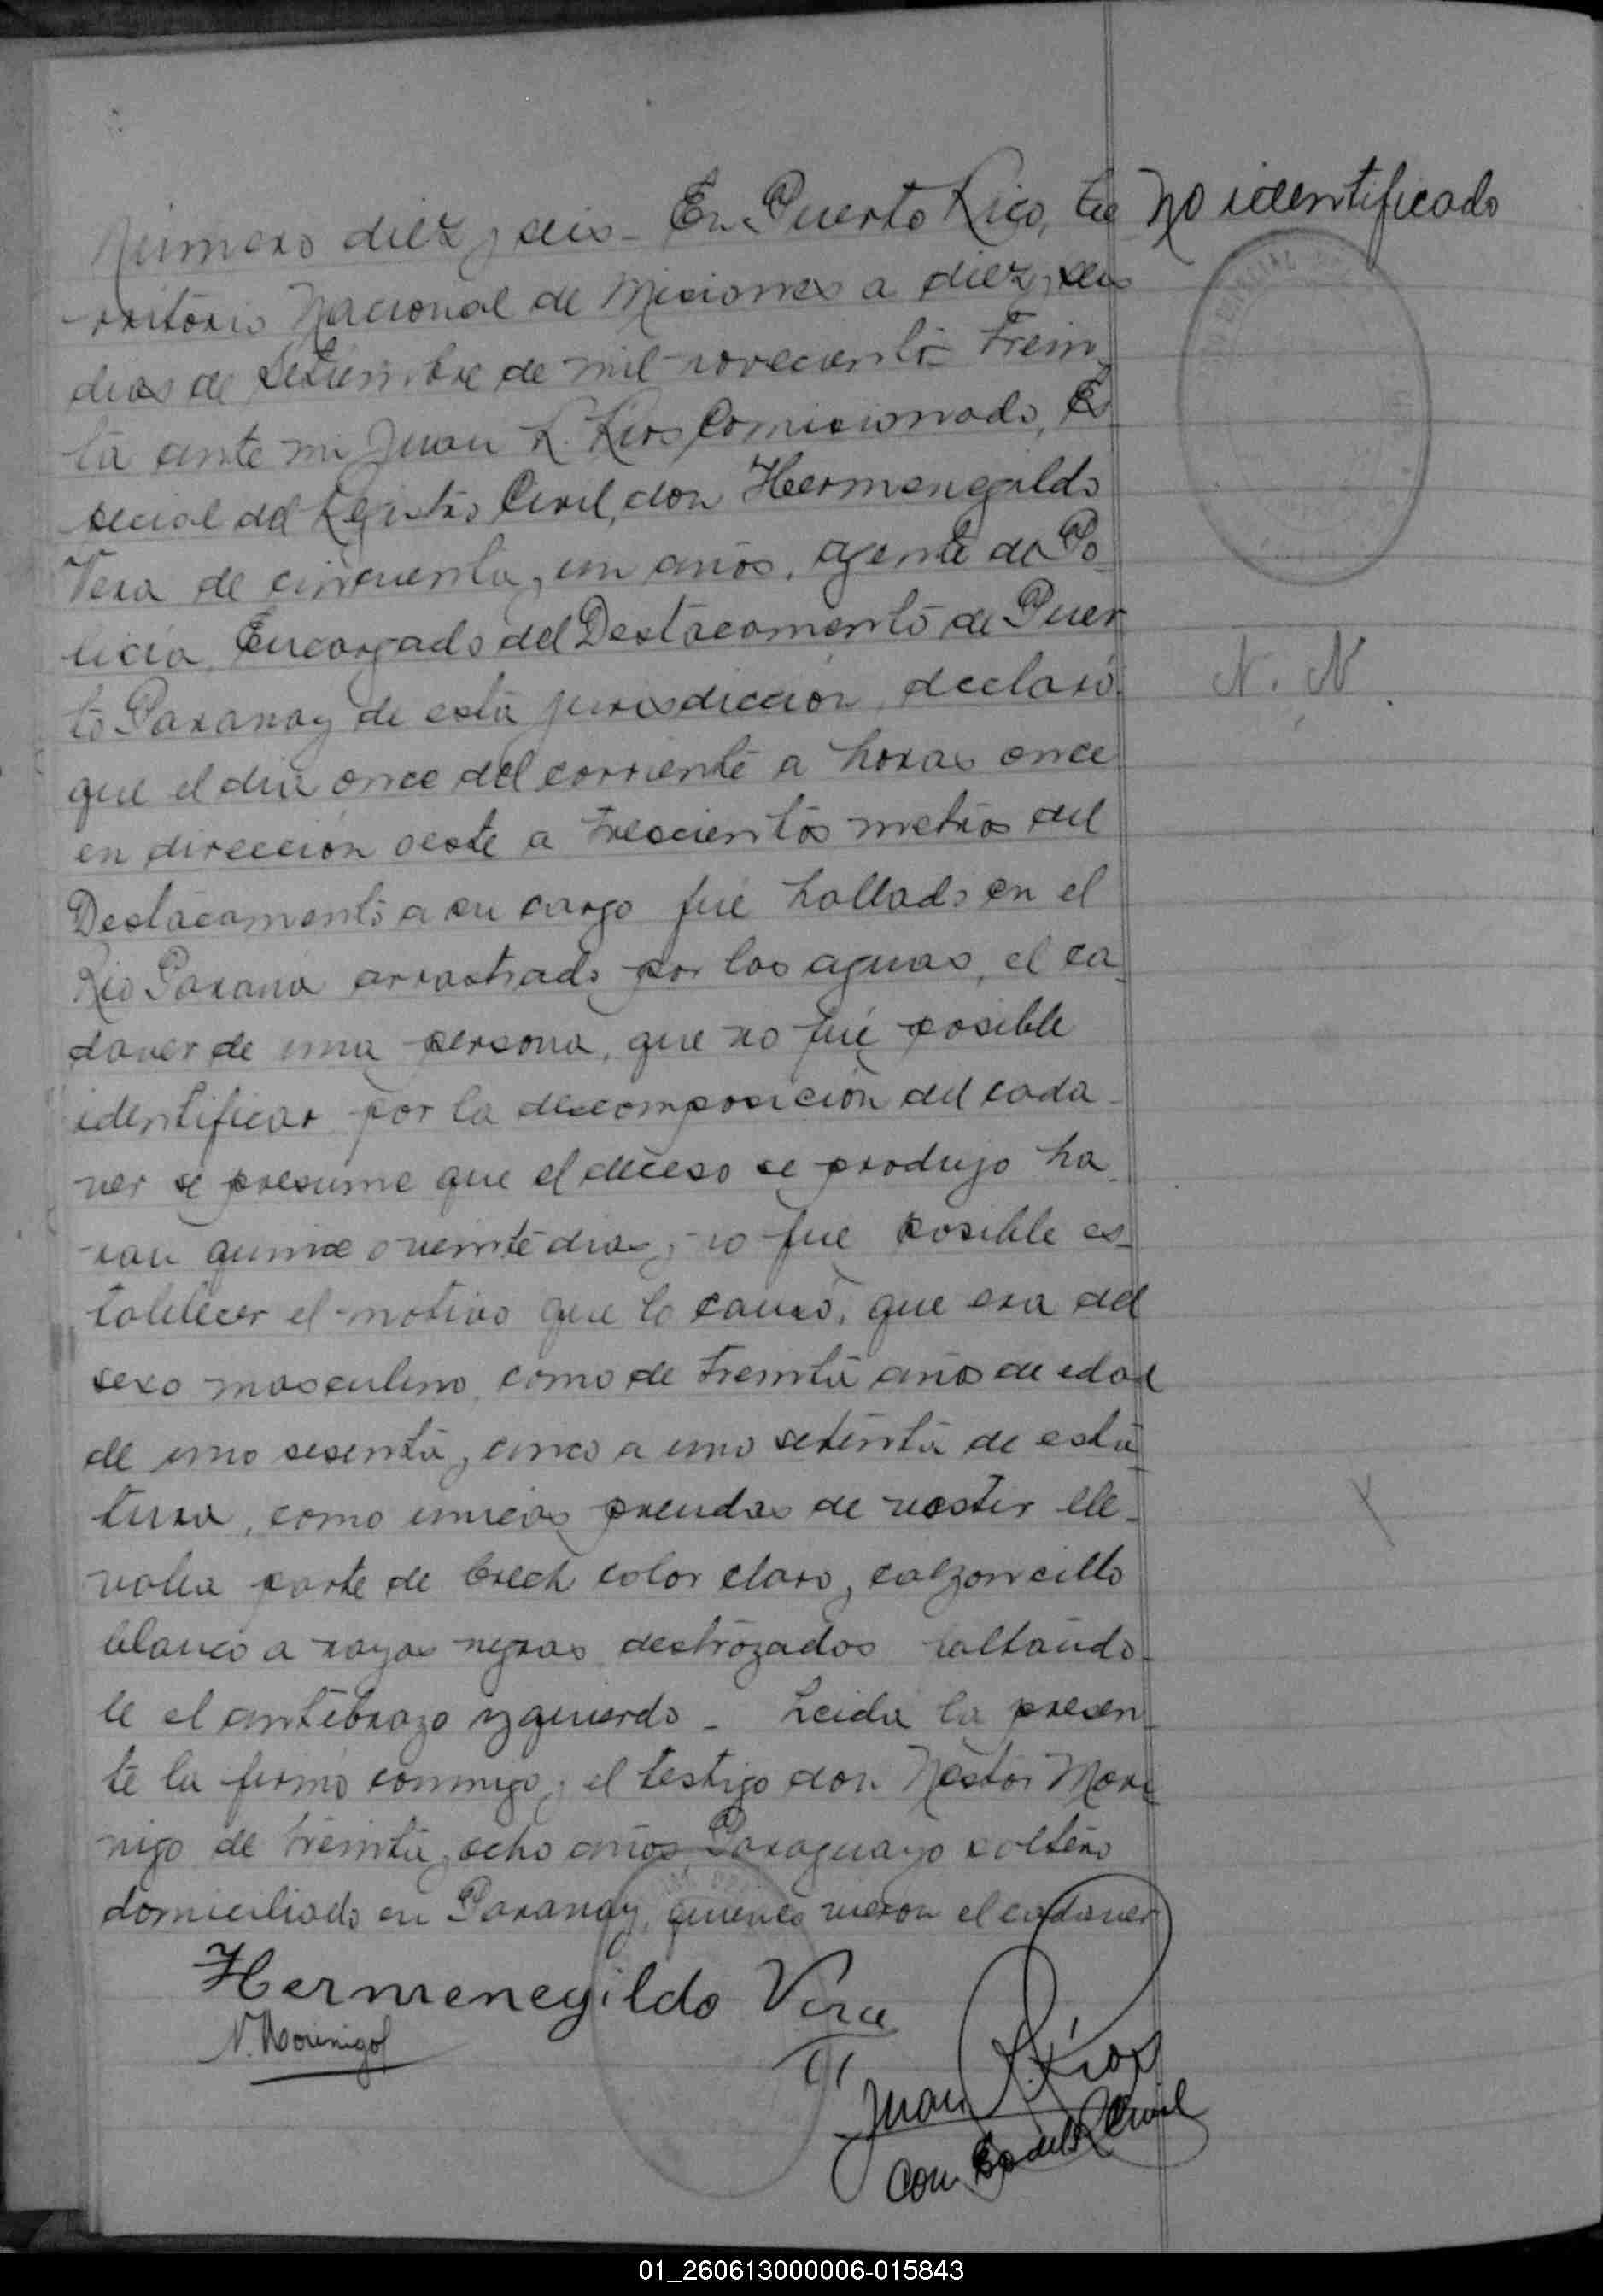 Número diez y seis - En Puerto Rico, te
rritorio Nacional de Misiones a diez y seis
dias de Setiembre de mil novecientos trein
ta ante mi Juan R. Rios Comisionado, Es
pecial del Registro Civil, don Hermenegildo
Vera de cincuenta y un años, agente de Po
licia, Encargado del Destacamento de Puer
to Paranay de esta jurisdiccion, declaró
que el dia once del corriente a horas once
en dirección oeste a trescientos metros del
Destacamento a su cargo fué hallado en el
Rio Paraná arrastrado por las aguas, el ca
daver de una persona, que no fué posible
identificar por la descomposición del cada
ver se presume que el deceso se produjo ha
ran quince o veinte dias, no fue posible es
tablecer el motivo que lo causó, que era del
sexo masculino, como de treinta años de edad
de uno sesenta y cinco a uno setenta de esta
tura, como unicas prendas de vestir lle
vaba parte de brech color claro, calzoncillo
blanco a rayas negras destrozados faltando
le el antebrazo izquierdo - Leida la presen
te la firmó conmigo y el testigo don Néstor Mori
nigo de treinta y ocho años, Paraguayo soltero
domiciliado en Paranay, quienes vieron el cadaver
No identificado
N. N.
Hermenegildo Vera
N. Morinigo
Juan R. Rios
Com Es del R Civil
01_260613000006-015843